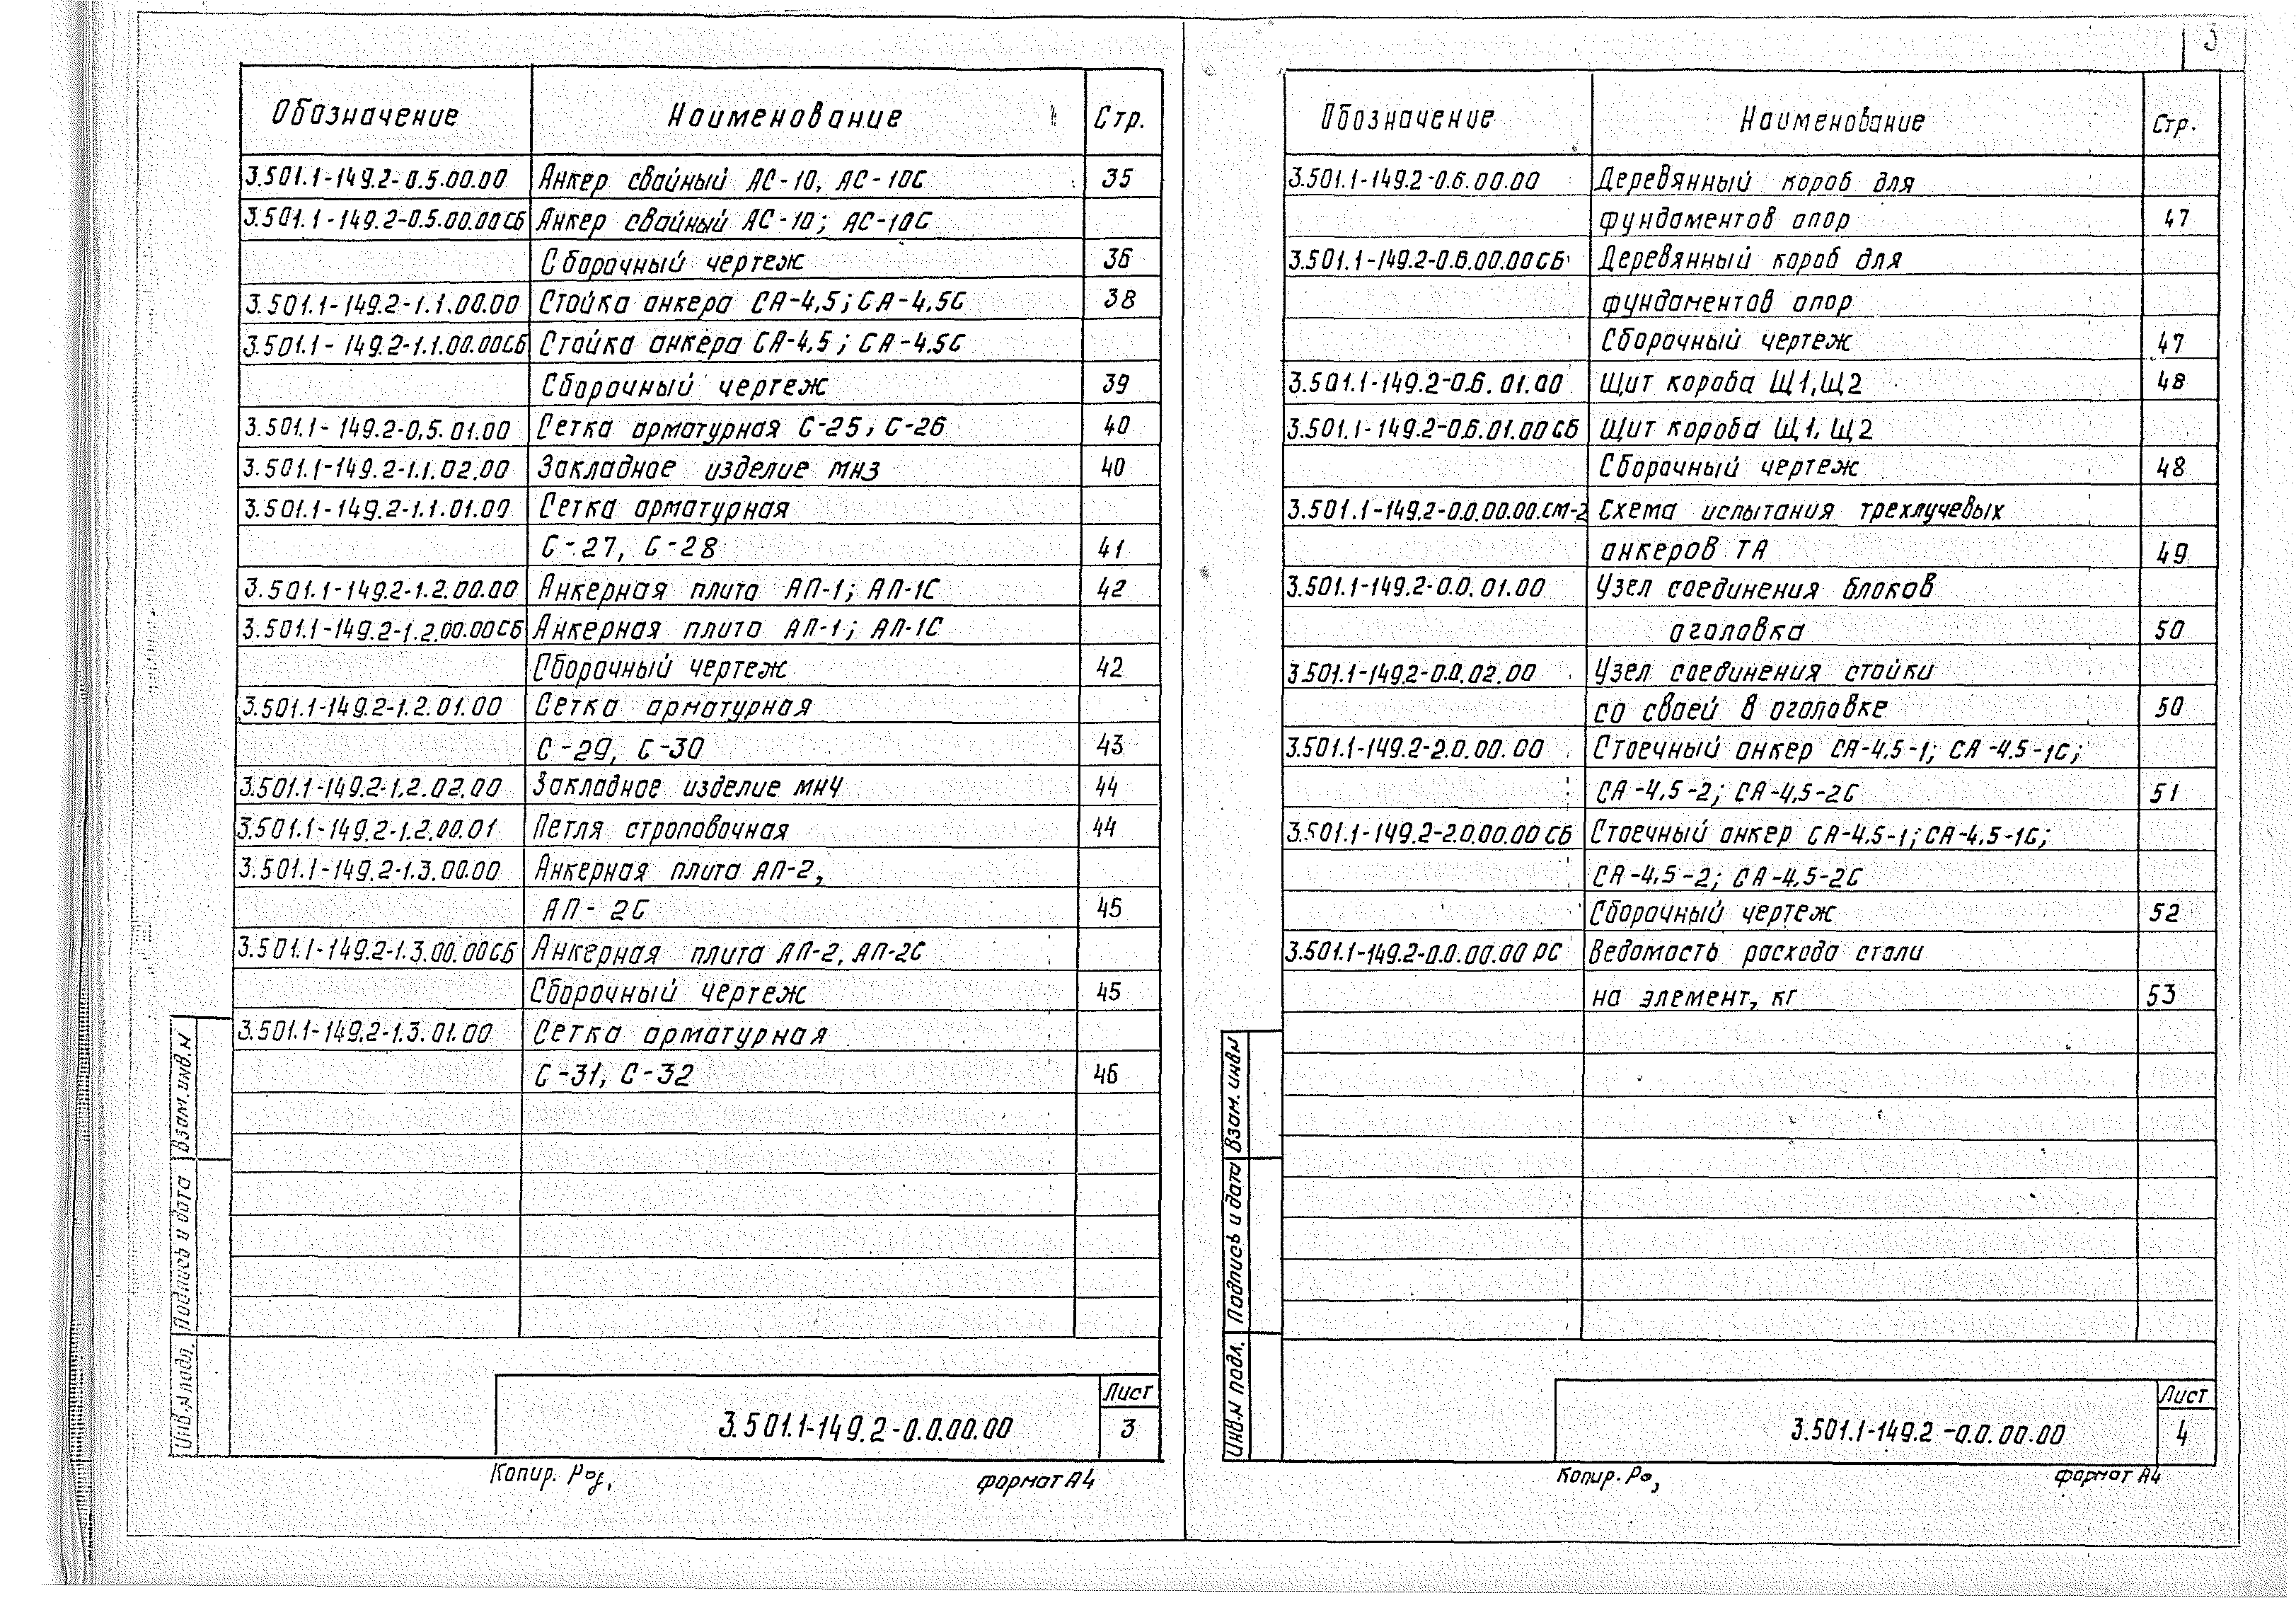 3
Обозначение Наименование Стр.
3.501.1-149.2-0.5.00.00 Анкер свайный АС-10, АС-10С 35
3.501.1-149.2-0.5.00.00СБ Анкер свайный АС-10; АС-10С
Сборочный чертеж 36
3.501.1-149.2-1.1.00.00 Стойка анкера СА-4,5; СА-4,5С 38
3.501.1-149.2-1.1.00.00СБ Стойка анкера СА-4,5; СА-4,5С
Сборочный чертеж 39
3.501.1-149.2-0.5.01.00 Сетка арматурная С-25, С-26 40
3.501.1-149.2-1.1.02.00 Закладное изделие МН3 40
3.501.1-149.2-1.1.01.00 Сетка арматурная
С-27, С-28 41
3.501.1-149.2-1.2.00.00 Анкерная плита АП-1; АП-1С 42
3.501.1-149.2-1.2.00.00СБ Анкерная плита АП-1; АП-1С
Сборочный чертеж 42
3.501.1-149.2-1.2.01.00 Сетка арматурная
С-29, С-30 43
3.501.1-149.2-1.2.02.00 Закладное изделие МН4 44
3.501.1-149.2-1.2.00.01 Петля строповочная 44
3.501.1-149.2-1.3.00.00 Анкерная плита АП-2,
АП-2С 45
3.501.1-149.2-1.3.00.00СБ Анкерная плита АП-2, АП-2С
Сборочный чертеж 45
3.501.1-149.2-1.3.01.00 Сетка арматурная
С-31, С-32 46
Взам.инв.N
Подпись и дата
Инв.N подл.
3.501.1-149.2-0.0.00.00
Лист
3
Копир.
формат А4
Обозначение Наименование Стр.
3.501.1-149.2-0.6.00.00 Деревянный короб для
фундаментов опор 47
3.501.1-149.2-0.6.00.00СБ Деревянный короб для
фундаментов опор
Сборочный чертеж 47
3.501.1-149.2-0.6.01.00 Щит короба Щ1, Щ2 48
3.501.1-149.2-0.6.01.00СБ Щит короба Щ1, Щ2
Сборочный чертеж 48
3.501.1-149.2-0.0.00.00.СМ-2 Схема испытания трехлучевых
анкеров ТА 49
3.501.1-149.2-0.0.01.00 Узел соединения блоков
оголовка 50
3.501.1-149.2-0.0.02.00 Узел соединения стойки
со сваей в оголовке 50
3.501.1-149.2-2.0.00.00 Стоечный анкер СА-4,5-1; СА-4,5-1С;
СА-4,5-2; СА-4,5-2С 51
3.501.1-149.2-2.0.00.00СБ Стоечный анкер СА-4,5-1; СА-4,5-1С;
СА-4,5-2; СА-4,5-2С
Сборочный чертеж 52
3.501.1-149.2-0.0.00.00 РС Ведомость расхода стали
на элемент, кг 53
Взам. инв.N
Подпись и дата
Инв.N подл.
3.501.1-149.2-0.0.00.00
Лист
4
Копир.
формат А4